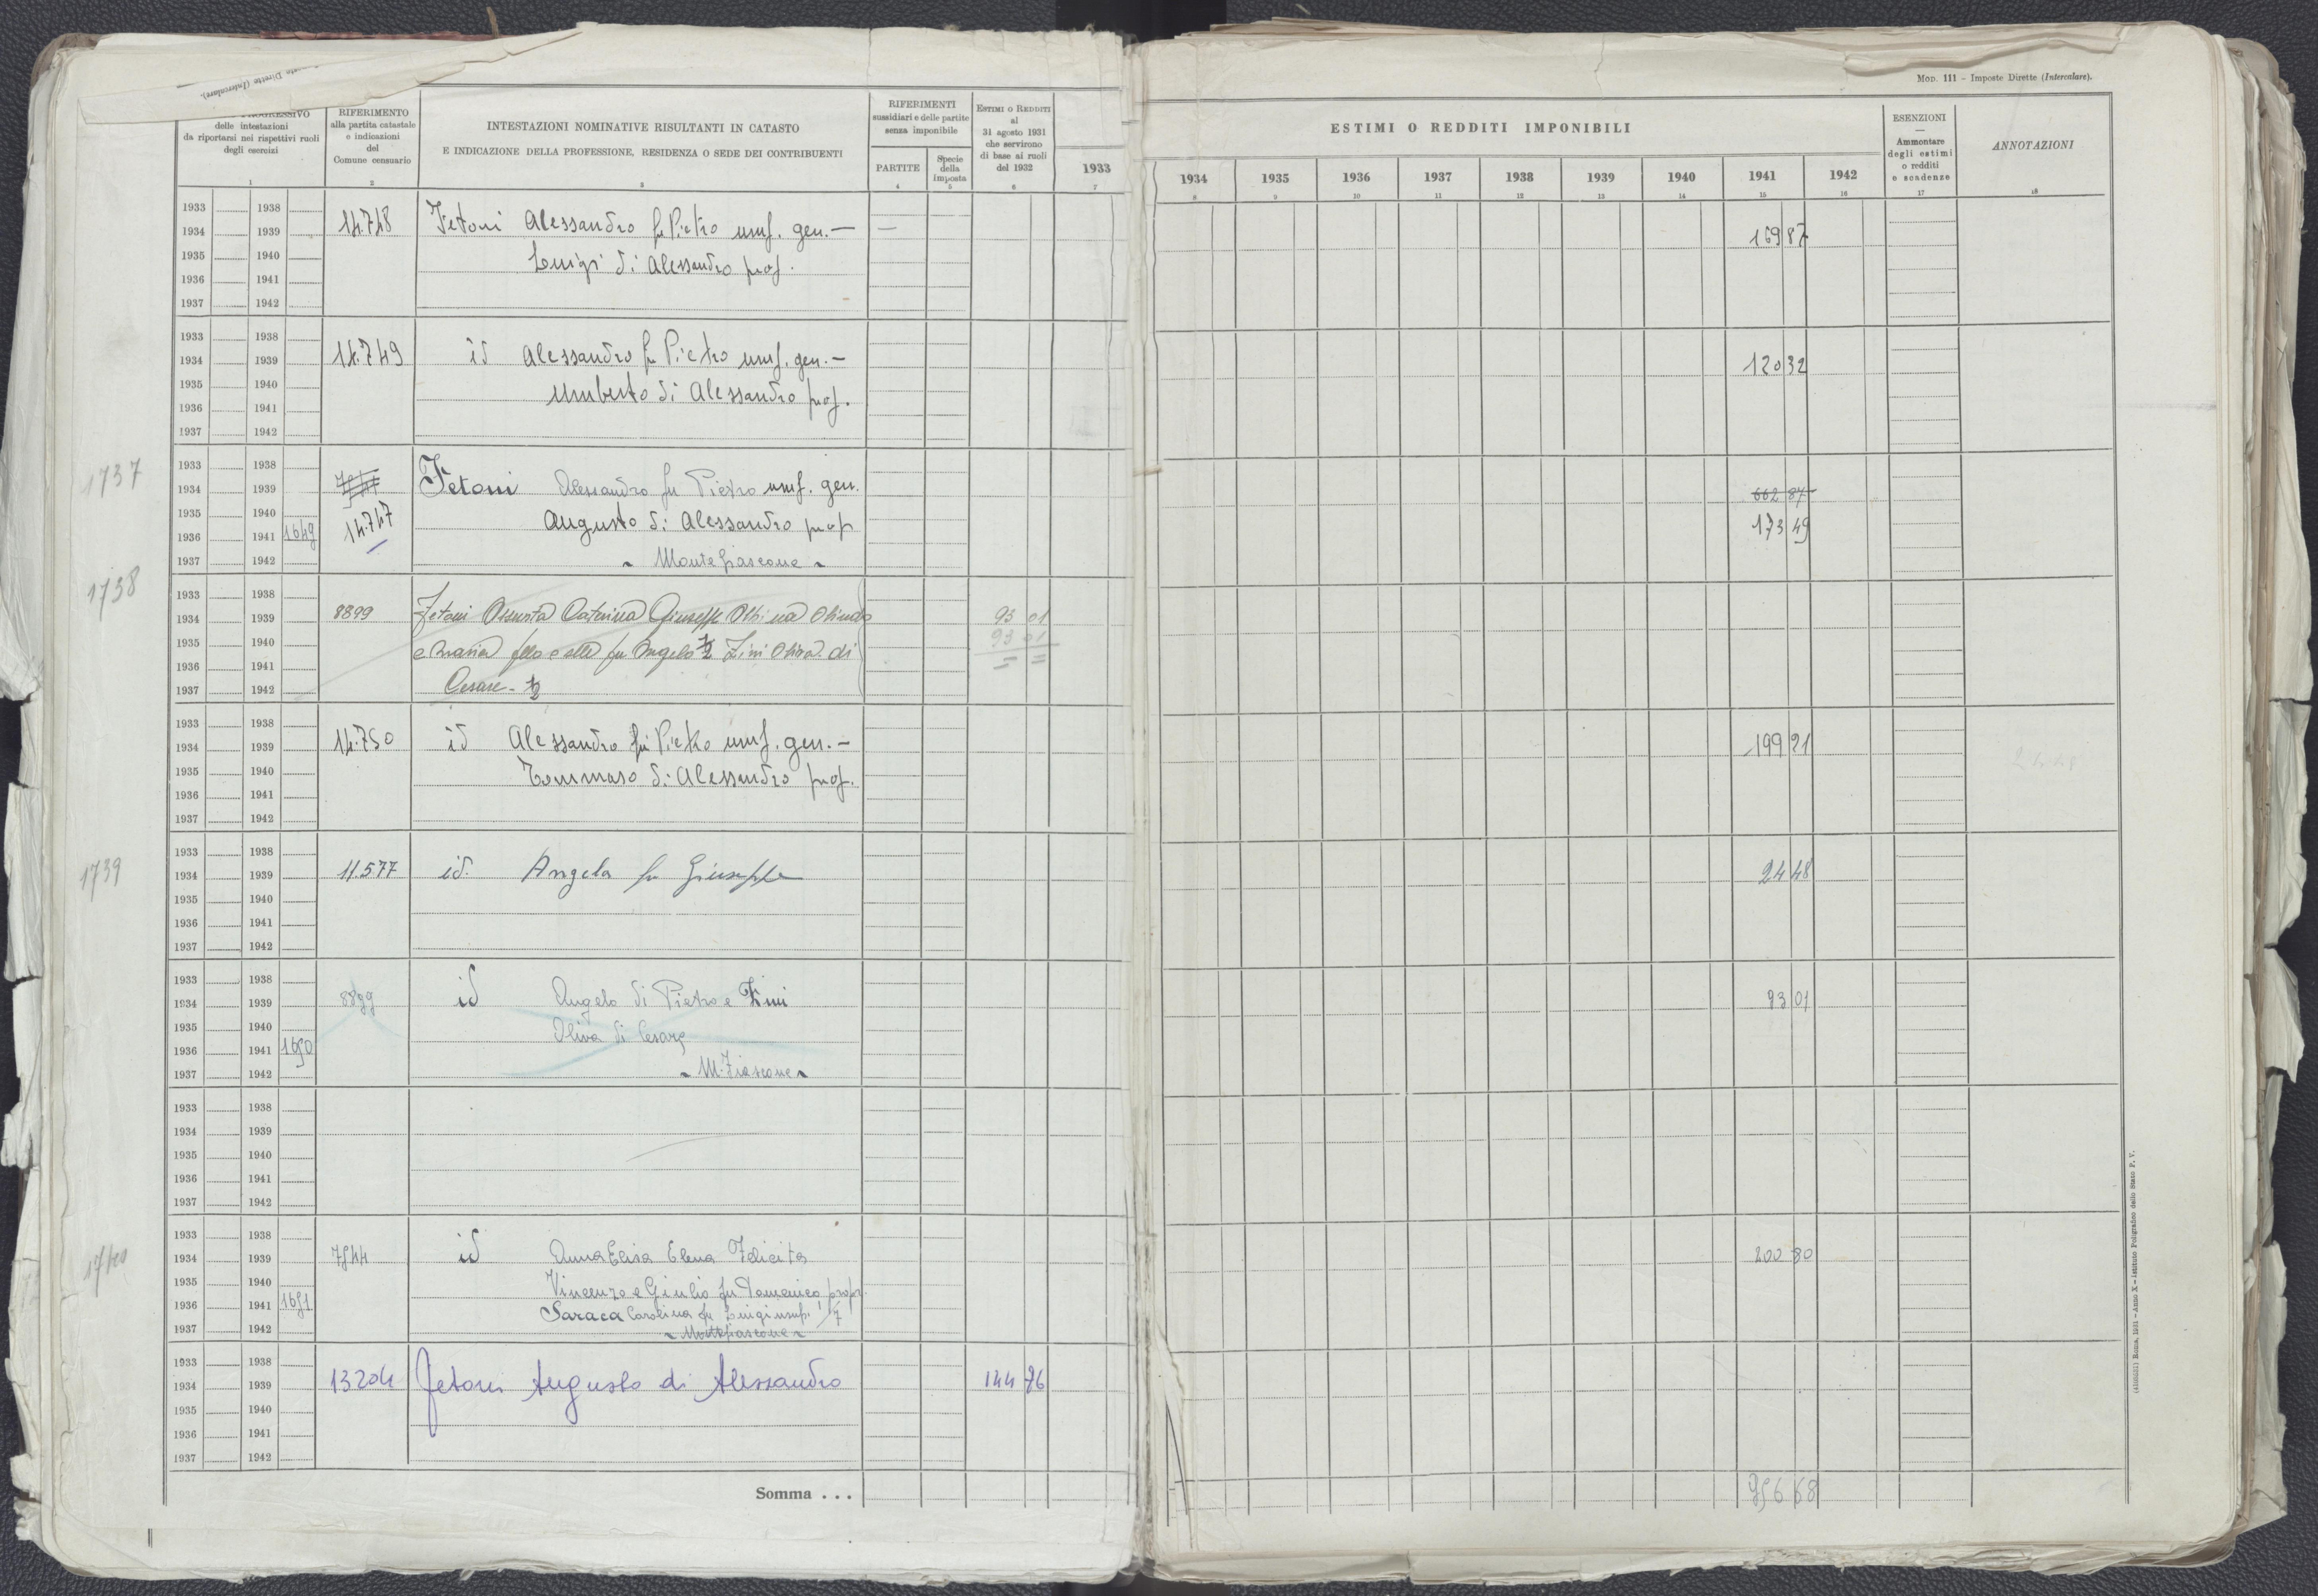 Mod. 111 - Imposte Dirette (Intercalare).
Dirette (Intercalare).
PROGRESSIVO
delle intestazioni
da riportarsi nei rispettivi ruoli
degli esercizi
1
RIFERIMENTO
alla partita catastale
e indicazioni
del
Comune censuario
2
INTESTAZIONI NOMINATIVE RISULTANTI IN CATASTO
E INDICAZIONE DELLA PROFESSIONE, RESIDENZA O SEDE DEI CONTRIBUENTI
3
RIFERIMENTI
sussidiari e delle partite
senza imponibile
PARTITE
4
Specie
della
imposta
5
ESTIMI O REDDITI
al
31 agosto 1931
che servirono
di base ai ruoli
del 1932
6
1933
7
ESTIMI O REDDITI IMPONIBILI
1934 1935 1936 1937 1938 1939 1940 1941 1942
8 9 10 11 12 13 14 15 16
ESENZIONI
—
Ammontare
degli estimi
o redditi
e scadenze
17
ANNOTAZIONI
18
1933 1938
1934 1939 14.748 Fetoni Alessandro fu Pietro usuf. gen. — 169 87
1935 1940 Luigi di Alessandro prop.
1936 1941
1937 1942
1933 1938
1934 1939 14.749 id Alessandro fu Pietro usuf. gen. — 120 32
1935 1940
1936 1941 Umberto di Alessandro prop.
1937 1942
1737 1933 1938
1934 1939 Fetoni Alessandro fu Pietro usuf. gen. 662 87
1935 1940 14.747 Augusto di Alessandro prop 173 49
1936 1941 1649
1937 1942 Montefiascone
1738 1933 1938
1934 1939 8899 Fetoni Assunta Caterina Giuseppe Albina Olindo 93 01
1935 1940 e Maria fllo e slle fu Angelo 1/2 Zini Oliva di 93 01
1936 1941
1937 1942 Cesare - 1/2
1933 1938
1934 1939 14.750 id Alessandro fu Pietro usuf. gen. — 199 21
1935 1940 Tommaso di Alessandro prop.
1936 1941
1937 1942
1739 1933 1938
1934 1939 11.577 id. Angela fu Giuseppe 24 48
1935 1940
1936 1941
1937 1942
1933 1938
1934 1939 8899 id Angelo di Pietro e Zini 93 01
1935 1940 Oliva di Cesare
1936 1941 1650
1937 1942 M. Fiascone
1933 1938
1934 1939
1935 1940
1936 1941
1937 1942
1740 1933 1938
1934 1939 7544 id Anna Elisa Elena Felicita 200 80
1935 1940 Vincenzo e Giulio fu Domenico propr.
1936 1941 1651 Saraca Carolina fu Luigi usuf. 1/7
1937 1942 Montefiascone
1933 1938
1934 1939 13204 Fetoni Augusto di Alessandro 144 76
1935 1940
1936 1941
1937 1942
Somma . . . 956 68
Roma, 1931 - Anno X - Istituto Poligrafico dello Stato P. V.